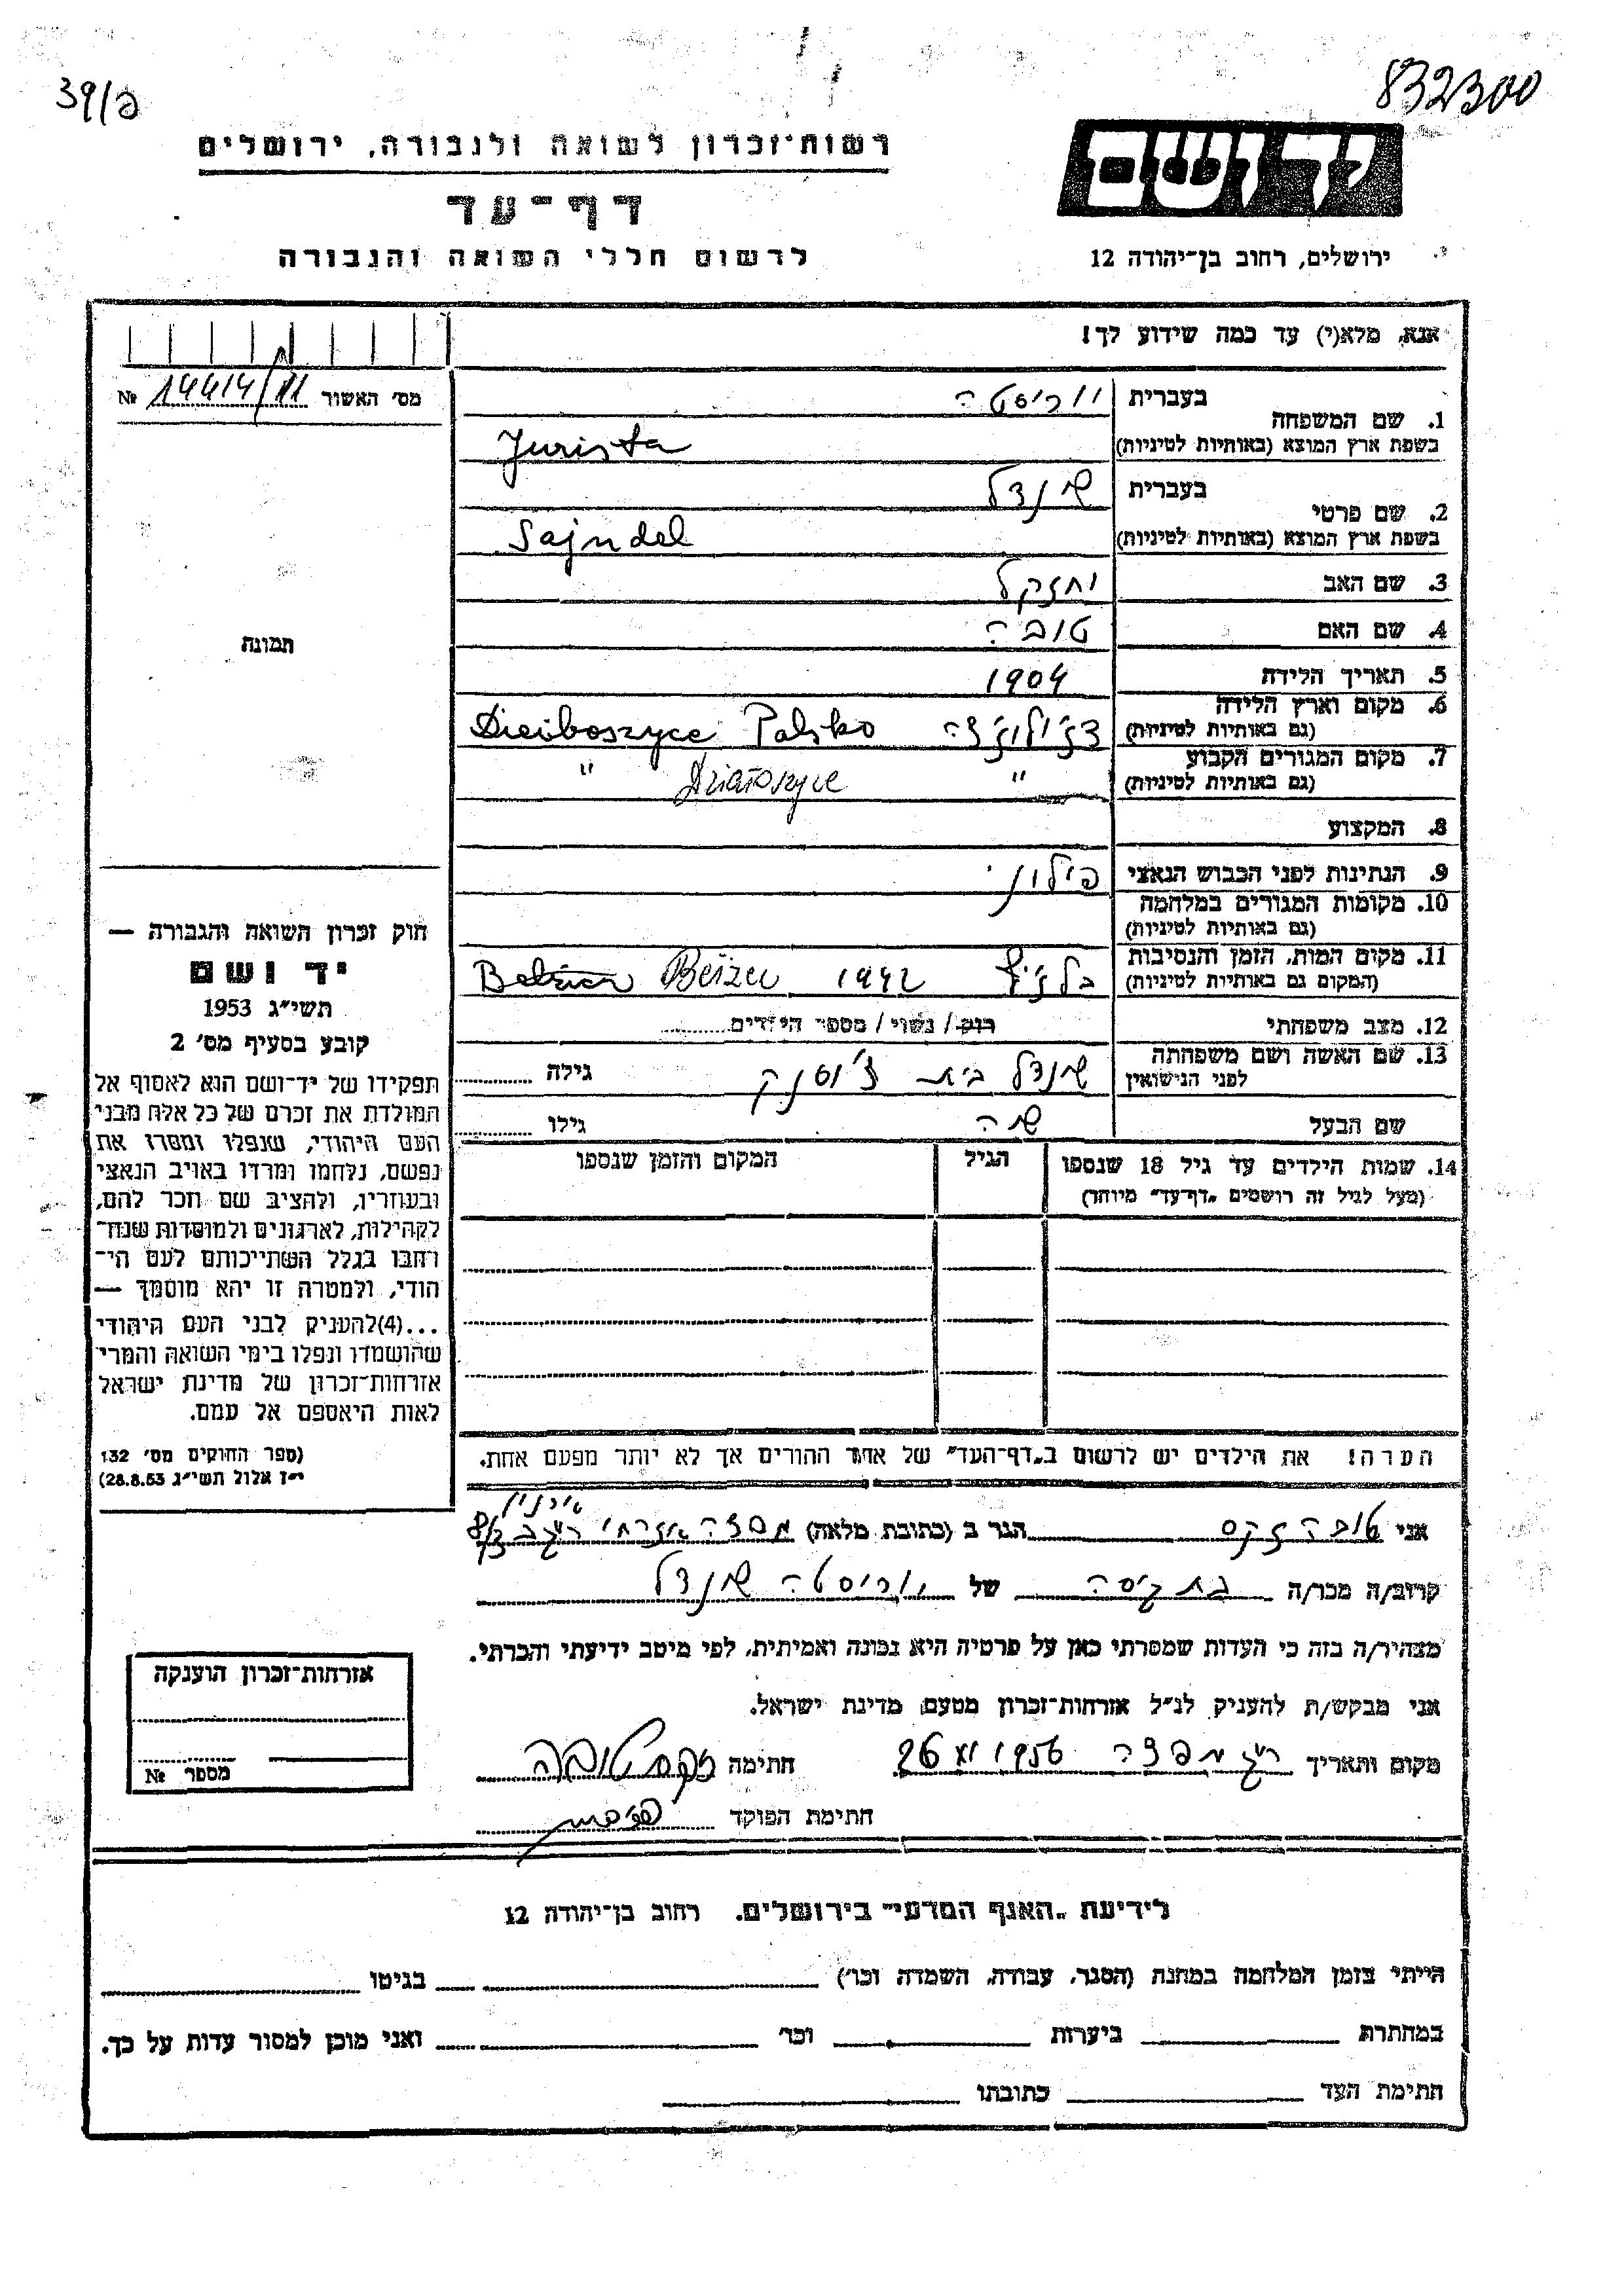 39/פ
832300
רשות־זכרון לשואה ולגבורה, ירושלים
דף־עד
לרשום חללי השואה והגבורה
יד ושם
ירושלים, רחוב בן־יהודה 12
אנא, מלא(י) עד כמה שידוע לך!
מס׳ האשור 14414/11 №
תמונה
1. שם המשפחה
בעברית יוריסטה
בשפת ארץ המוצא (באותיות לטיניות) Jurista
2. שם פרטי
בעברית שינדל
בשפת ארץ המוצא (באותיות לטיניות) Sajndel
3. שם האב יחזקל
4. שם האם טובה
5. תאריך הלידה 1904
6. מקום וארץ הלידה
(גם באותיות לטיניות) Palsko
7. מקום המגורים הקבוע
(גם באותיות לטיניות) " Działoszyce "
8. המקצוע
9. הנתינות לפני הכבוש הנאצי פילוני
10. מקומות המגורים במלחמה
(גם באותיות לטיניות)
11. מקום המות, הזמן והנסיבות
(המקום גם באותיות לטיניות) 1942 Bełżec
12. מצב משפחתי רוק / נשוי / מספר הילדים
13. שם האשה ושם משפחתה
לפני הנישואין שינדל בית גילה
שם הבעל גילו
14. שמות הילדים עד גיל 18 שנספו
(מעל לגיל זה רושמים „דף־עד״ מיוחד)
הגיל
המקום והזמן שנספו
חוק זכרון השואה והגבורה —
יד ושם
תשי״ג 1953
קובע בסעיף מס׳ 2
תפקידו של יד־ושם הוא לאסוף אל
המולדת את זכרם של כל אלה מבני
העם היהודי, שנפלו ומסרו את
נפשם, נלחמו ומרדו באויב הנאצי
ובעוזריו, ולהציב שם וזכר להם,
לקהילות, לארגונים ולמוסדות שנח־
רחבו בגלל השתייכותם לעם הי־
הודי, ולמטרה זו יהא מוסמך —
...(4)להעניק לבני העם היהודי
שהושמדו ונפלו בימי השואה והמרי
אזרחות־זכרון של מדינת ישראל
לאות היאספם אל עמם.
(ספר החוקים מס׳ 132
י״ז אלול תשי״ג 28.8.53)
הערה! את הילדים יש לרשום ב„דף־העד״ של אחד ההורים אך לא יותר מפעם אחת.
אני טובה זקס הגר ב (כתובת מלאה)
קרוב/ה מכר/ה של יוריסטה שינדל
מצהיר/ה בזה כי העדות שמסרתי כאן על פרטיה היא נכונה ואמיתית, לפי מיטב ידיעתי והכרתי.
אני מבקש/ת להעניק לנ״ל אזרחות־זכרון מטעם מדינת ישראל.
מקום ותאריך 1956 חתימה זקס טובה
חתימת הפוקד
אזרחות־זכרון הוענקה
מספר №
לידיעת „האגף המדעי״ בירושלים, רחוב בן־יהודה 12
הייתי בזמן המלחמה במחנה (הסגר, עבודה, השמדה וכו׳) בגיטו
במחתרת ביערות וכו׳ ואני מוכן למסור עדות על כך.
חתימת העד כתובתו